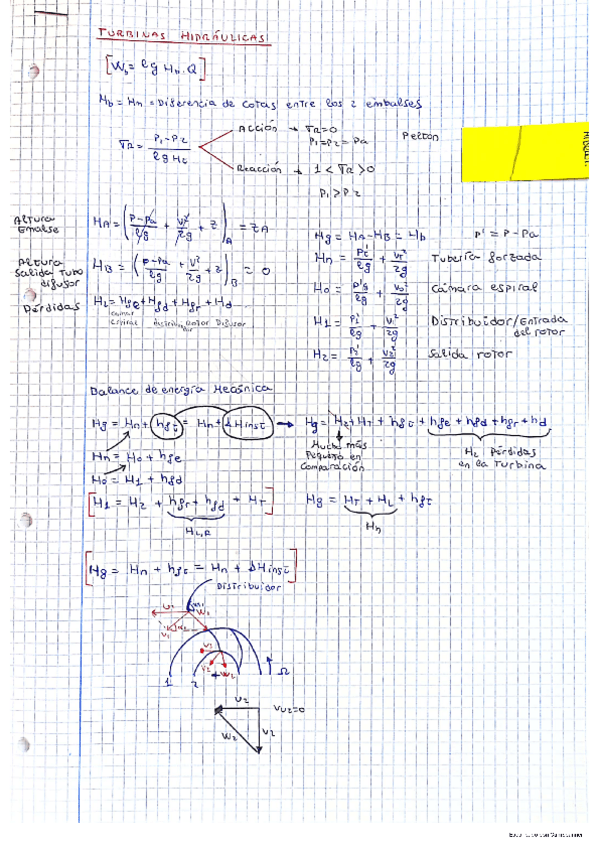 TURBINAS HIDRÁULICAS
[Wh = ρg Hn. Q]
Hb = Hn = Diferencia de cotas entre los 2 embalses
GR = (P1 - P2) / (ρg Ht)
Acción → GR = 0
P1 = P2 = Pa
Pelton
Reacción → 1 < GR > 0
P1 > P2
Altura Emalse
HA = ((P-Pa)/ρg + v²/2g + z)A = zA
Altura salida Tubo difusor
HB = ((P-Pa)/ρg + v²/2g + z)B = 0
Pérdidas
HL = Hge + Hgd + Hgr + Hd
Distribuidor rotor Difusor
Hg = HA - HB = Hb
P' = P - Pa
Tubería forzada
H0 = P'0/ρg + v0²/2g
Cámara espiral
H1 = P1'/ρg + v1²/2g
Distribuidor/Entrada del rotor
H2 = P2'/ρg + v2²/2g
Salida rotor
Balance de energía Mecánica
Hg = Hn + hgt = Hn + ΔHinst → Hg = H2 + HT + hgt + hge + hgd + hgr + hd
Mucho más pequeño en comparación
HL Pérdidas en la Turbina
Hn = H0 + hge
H0 = H1 + hgd
[H1 = H2 + hgr + hgd + HT]
HL,R
Hg = HT + HL + hgt
Hn
[Hg = Hn + hgt = Hn + ΔHinst]
Distribuidor
1 2
Ω
U2
Vu2=0
W2
V2